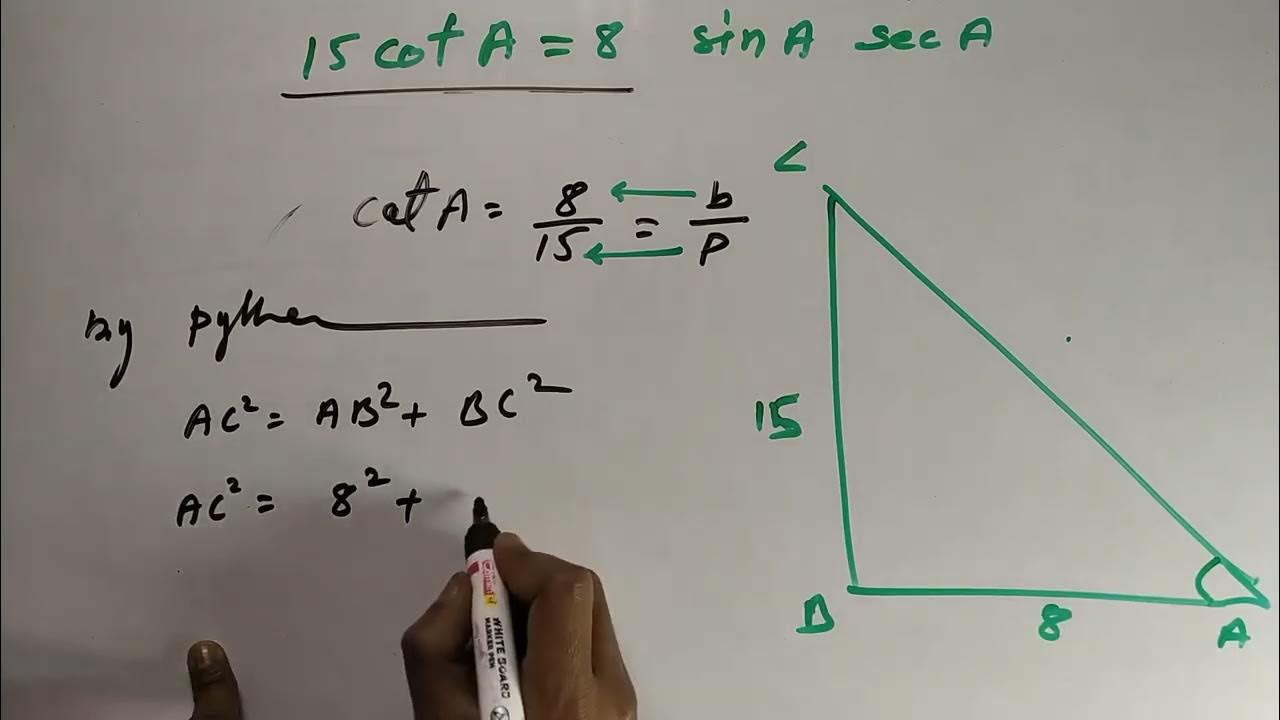 15 cot A = 8 sin A sec A
cot A = 8/15 = b/p
by pythen
AC² = AB² + BC²
AC² = 8² +
C
15
B
8
A
WHITE BOARD
MARKER PEN